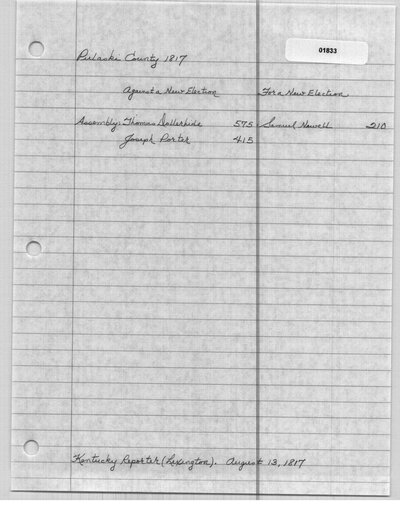 01833
Pulaski County 1817
Against a New Election For a New Election
Assembly: Thomas Dollerhide 575 Samuel Newell 210
Joseph Porter 415
Kentucky Reporter (Lexington). August 13, 1817